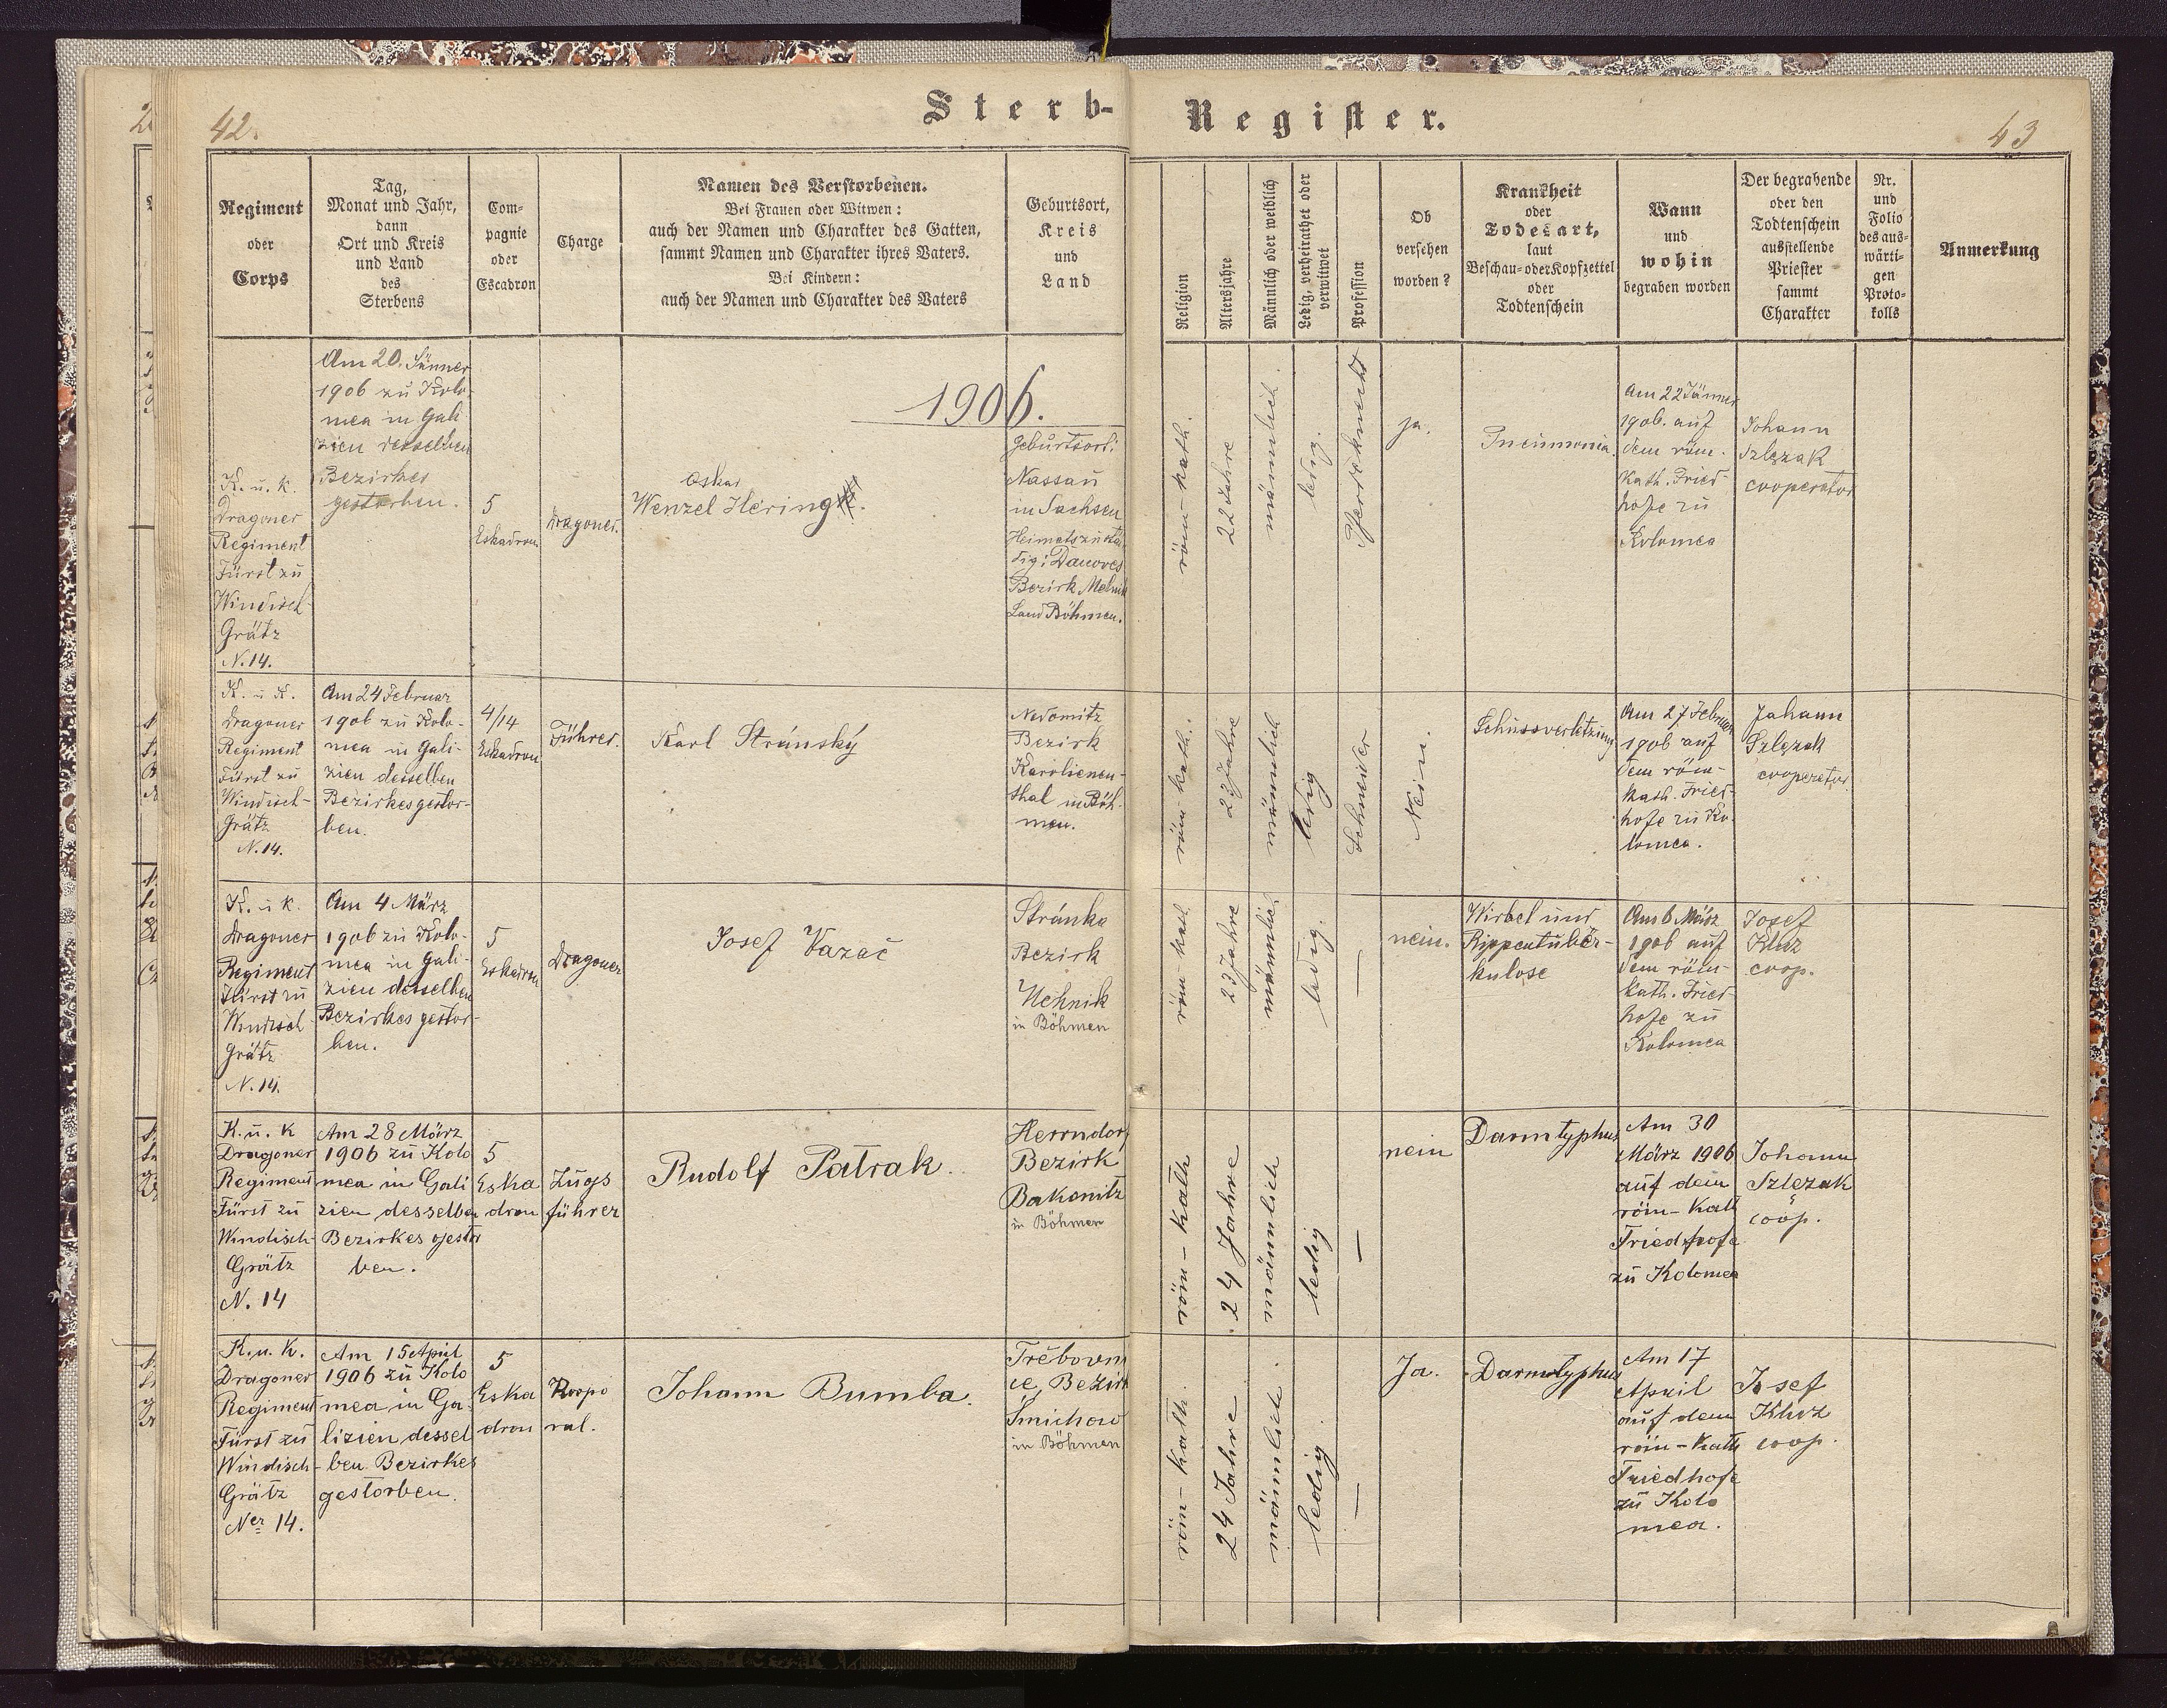 42.
Sterb-
Register.
43
Regiment
oder
Corps
Tag,
Monat und Jahr,
dann
Ort und Kreis
und Land
des
Sterbens
Com-
pagnie
oder
Escadron
Charge
Namen des Verstorbenen.
Bei Frauen oder Witwen:
auch der Namen und Charakter des Gatten,
sammt Namen und Charakter ihres Vaters.
Bei Kindern:
auch der Namen und Charakter des Vaters
Geburtsort,
Kreis
und
Land
Religion
Altersjahre
Männlich oder weiblich
Ledig, verheirathet oder
verwitwet
Profession
Ob
versehen
worden?
Krankheit
oder
Todesart,
laut
Beschau- oder Kopfzettel
oder
Todtenschein
Wann
und
wohin
begraben worden
Der begrabende
oder den
Todtenschein
ausstellende
Priester
sammt
Charakter
Nr.
und
Folio
des aus-
wärti-
gen
Proto-
kolls
Anmerkung
1906.
K. u. k.
Dragoner
Regiment
Fürst zu
Windisch-
Grätz
N. 14.
Am 20. Jänner
1906 zu Kolo-
mea in Gali
zien desselben
Bezirkes
gestorben.
5
Eskadron
Dragoner.
Oskar
Wenzel Hering
Geburtsort:
Nassau
in Sachsen
Heimatszustä
dig: Danoves
Bezirk Melnik
Land Böhmen.
röm-kath.
22 Jahre
männlich.
ledig.
Pferdeknecht
ja.
Pneumonia.
Am 22 Jänner
1906. auf
dem röm.
Kath. Fried-
hofe zu
Kolomea
Johann
Szlęzak
cooperator
K. u. K.
Dragoner
Regiment
Fürst zu
Windisch-
Grätz
N. 14.
Am 24 Februar
1906 zu Kolo-
mea in Gali-
zien desselben
Bezirkes gestor-
ben.
4/14
Eskadron
Führer.
Karl Stránský
Nedomitz
Bezirk
Karolienen-
thal in Böh-
men.
röm-kath.
23 Jahre
männlich
ledig
Schneider
Nein.
Schussverletzung
Am 27 Februar
1906 auf
dem röm-
kath. Fried-
hofe zu Ko-
lomea.
Johann
Szlęzak
cooperator
K. u k.
Dragoner
Regiment
Fürst zu
Windisch
Grätz
N. 14.
Am 4 März
1906 zu Kolo-
mea in Gali-
zien desselben
Bezirkes gestor-
ben.
5
Eskadron
Dragoner
Josef Vazač
Stránka
Bezirk
in Böhmen
röm-kath
23 Jahre
männlich
ledig.
—
nein.
Wirbel und
Rippentuber-
kulose
Am 6 März
1906 auf
dem röm-
kath. Fried-
hofe zu
Kolomea
Josef
coop.
K. u. k
Dragoner
Regiment
Fürst zu
Windisch-
Grätz
N. 14
Am 28 März
1906 zu Kolo
mea in Gali
zien desselben
Bezirkes gestor
ben.
5
Eska
dron
Zugs
führer
Rudolf Patrak.
Herrndorf
Bezirk
Rakonitz
in Böhmen
röm-kath
24 Jahre
männlich
ledig
—
nein
Darmtyphus
Am 30
März 1906
auf dem
röm-kath
Friedhofe
zu Kolomea
Johann
Szlęzak
coop.
K. u. k.
Dragoner
Regiment
Fürst zu
Windisch-
Grätz
Ner 14.
Am 15 April
1906 zu Kolo
mea in Ga
lizien dessel
ben Bezirkes
gestorben.
5
Eska
dron
Korpo
ral.
Johann Bumba.
Třebovni
ce, Bezirk
Smichow
in Böhmen
röm-kath.
24 Jahre
männlich.
ledig.
—
Ja.
Darmtyphus
Am 17
April
auf dem
röm-kath
Friedhofe
zu Kolo
mea.
Josef
coop.